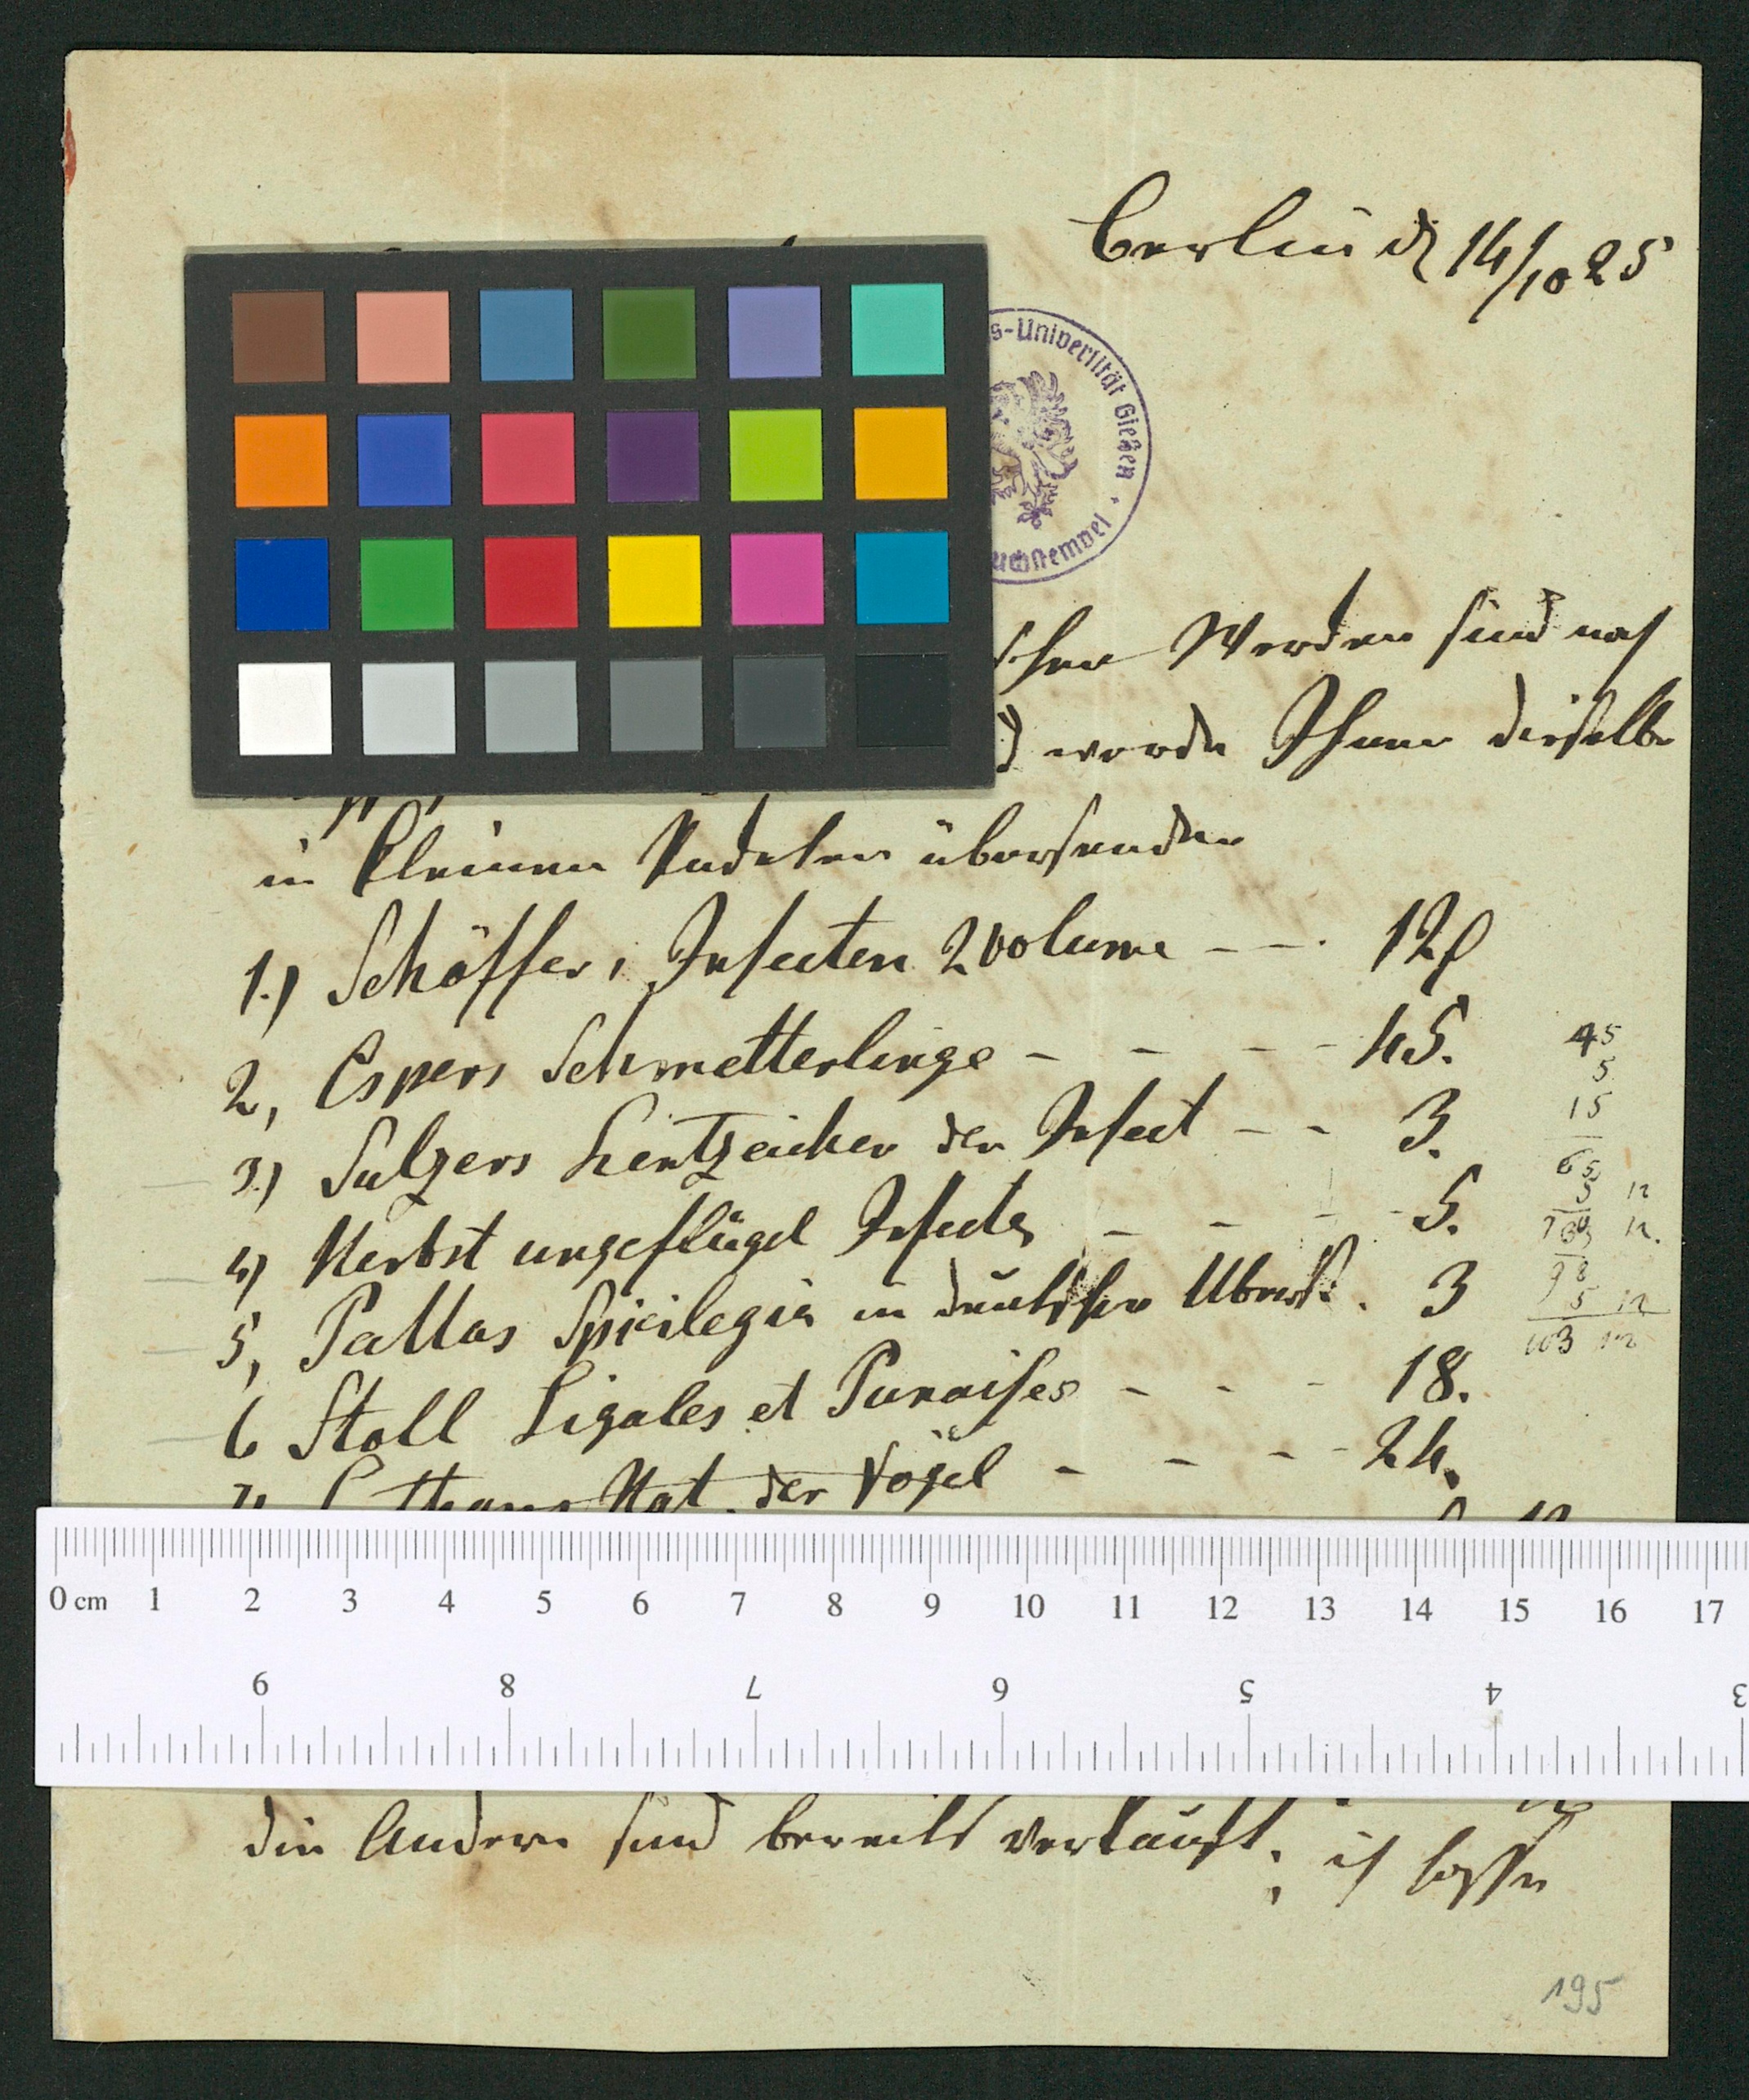 Berlin d 14/10 25
s-Universität Gießen
uchstempel
schen Werden sind noch
werde Ihnen dieselbe
in kleinen Paketen übersenden
1.) Schäffer, Insecten 2 volume - - . 12 f
2, Espers Schmetterlinge - - - - 45.
3.) Sulzers Kentzeichen der Insect - - 3.
4) Herbst ungeflügel Insecte - - - - 5.
5, Pallas Spicilegia in deutscher Ubers. . 3
6 Stoll Cigales et Punaises - - - 18.
7, Nat. der Vögel - - - - 24.
45
5
15
65
5 12
12.
98
5 12
103 12
0 cm 1 2 3 4 5 6 7 8 9 10 11 12 13 14 15 16 17
9 8 7 6 5 4 3
die Andern sind bereits verkauft; ich hoffe
195